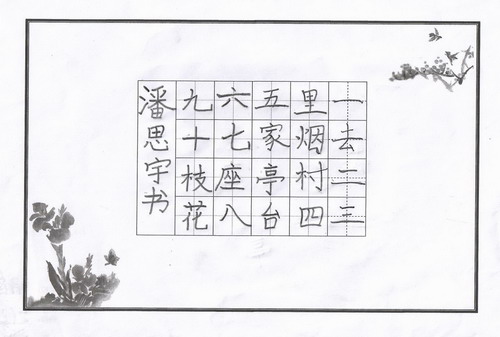 一去二三
里烟村四
五家亭台
六七座八
九十枝花
潘思宇书